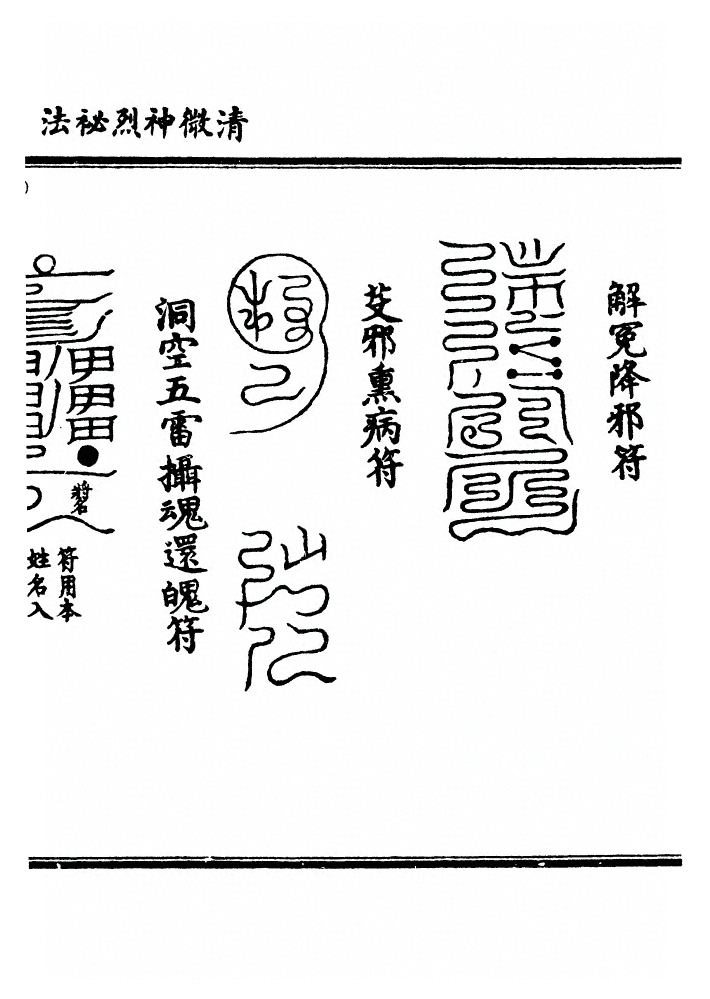 清微神烈祕法
解冤降邪符
艾邪熏病符
洞空五雷攝魂還魄符
符用本
姓名入